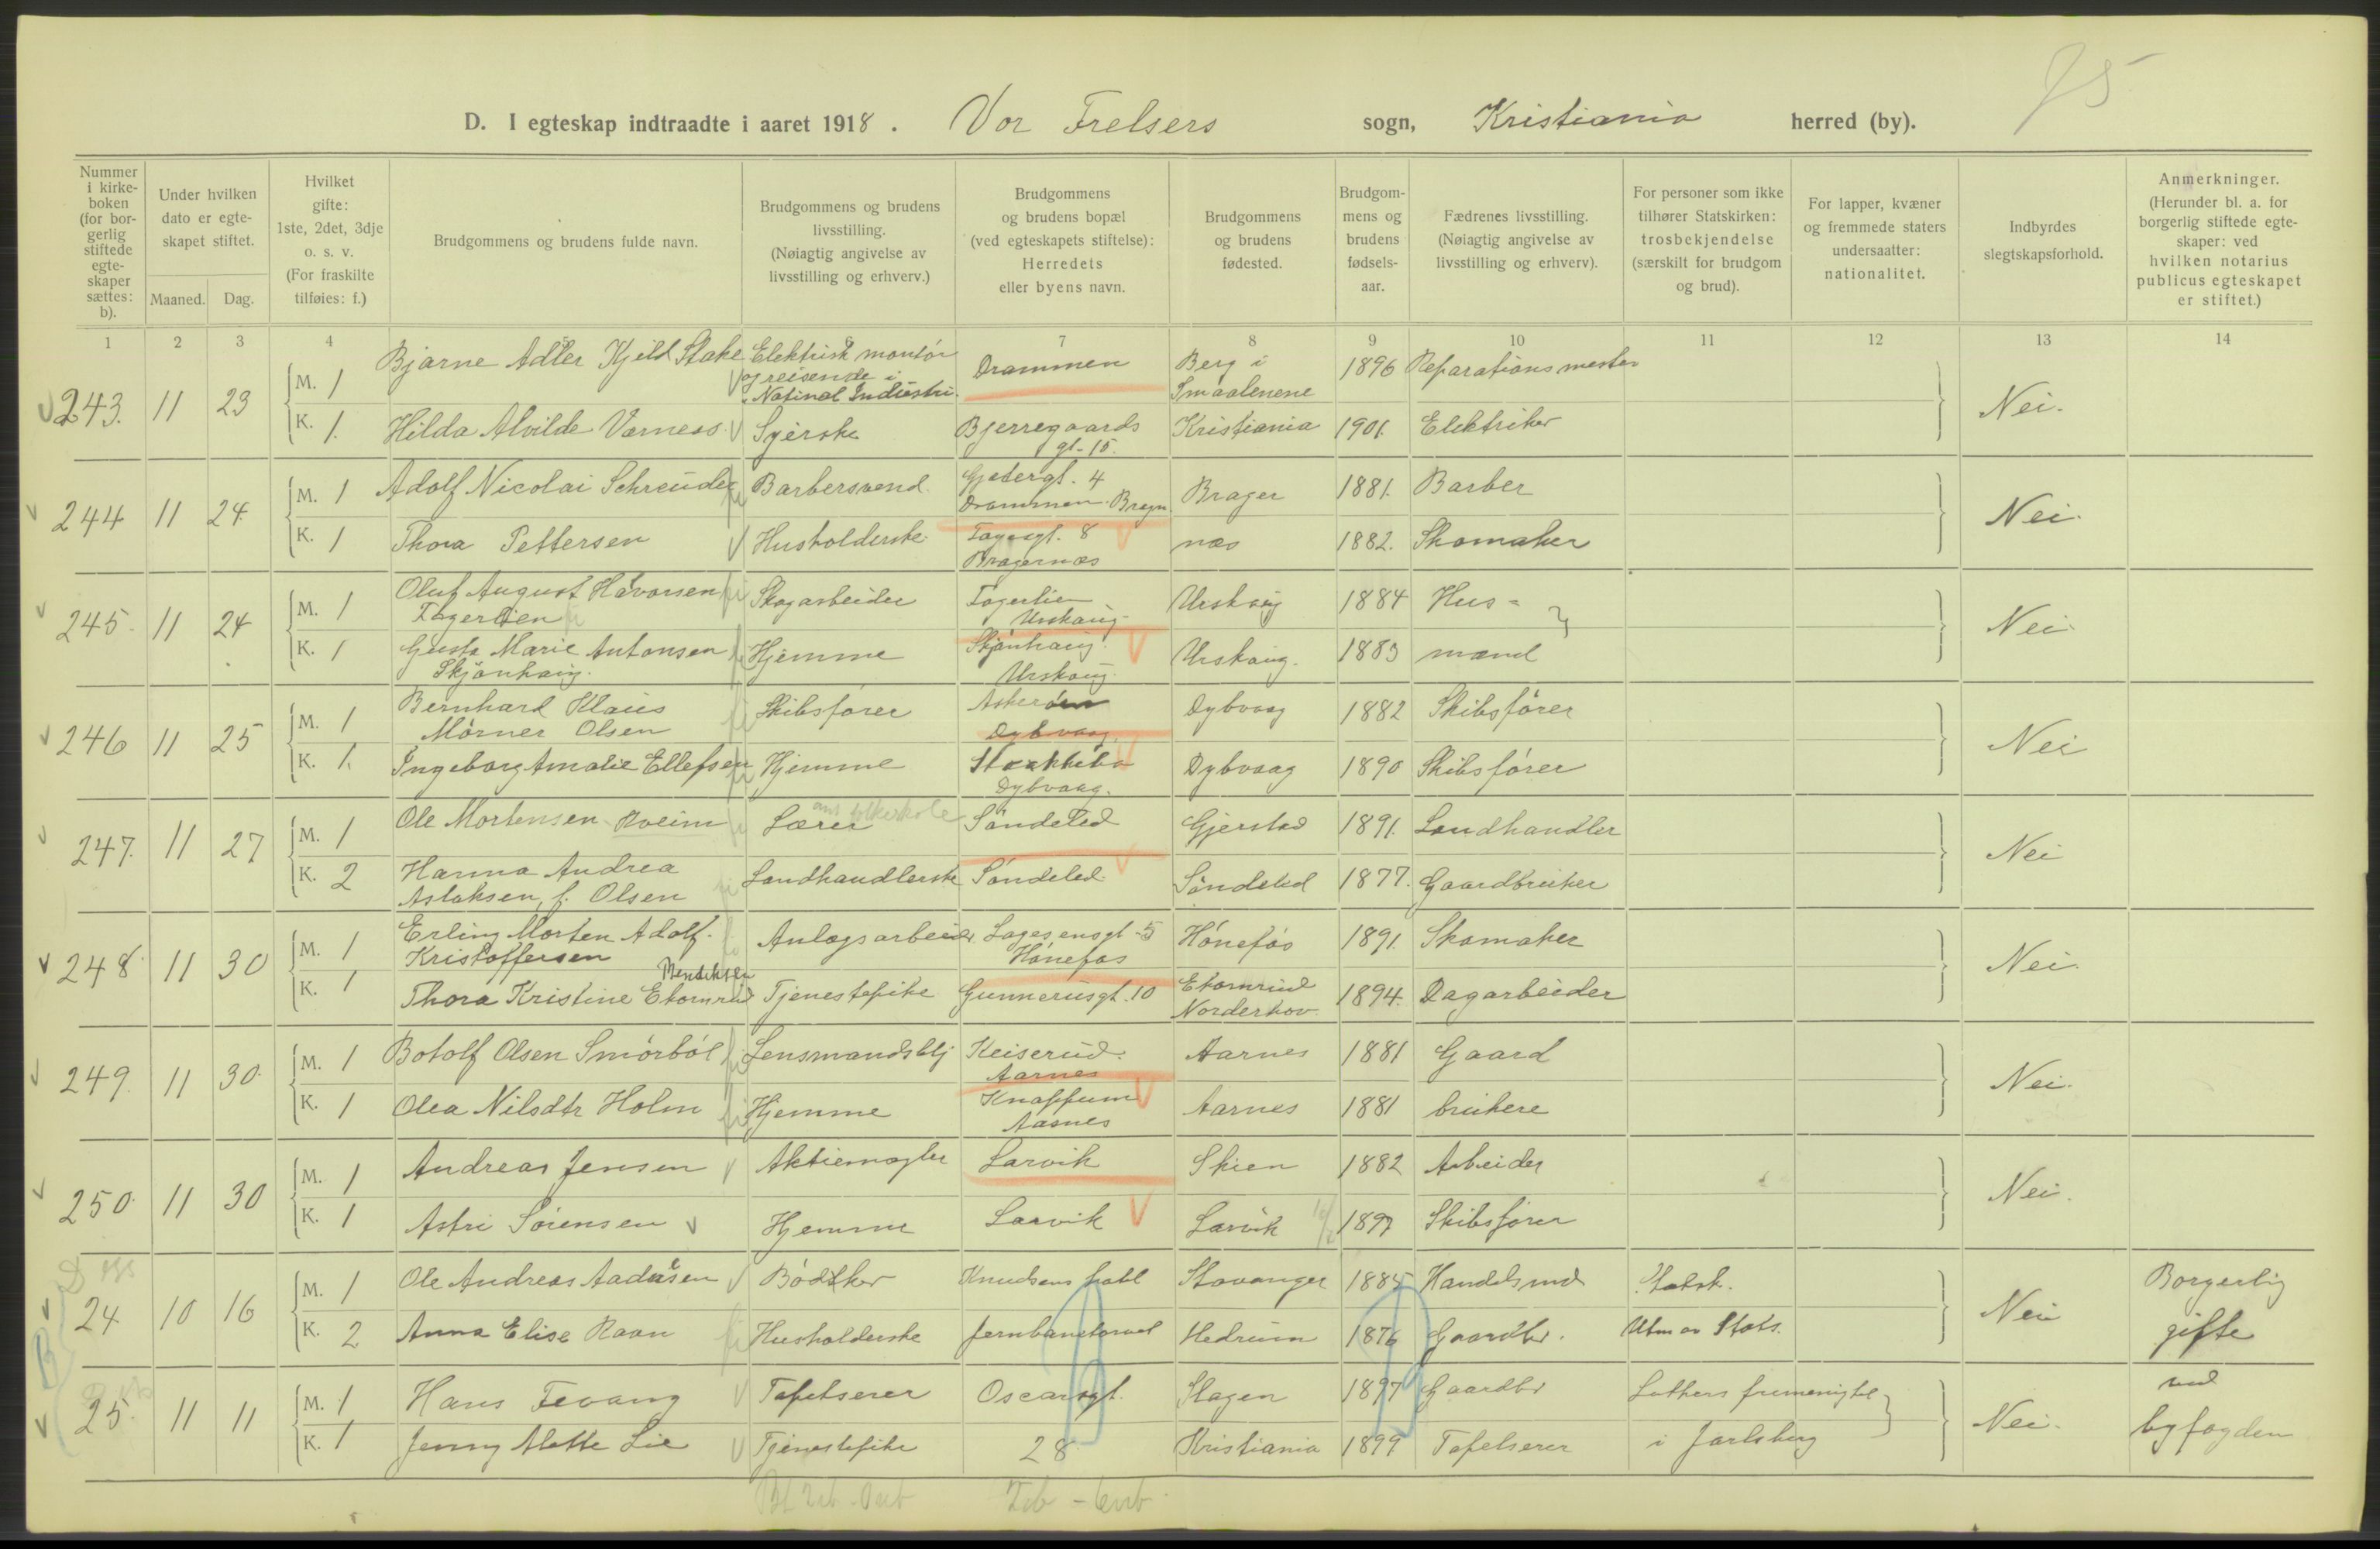 75
D. I egteskap indtraadte i aaret 1918. Vor Frelsers sogn, Kristiania herred (by).
Nummer i kirkeboken (for borgerlig stiftede egteskaper sættes: b).
Under hvilken dato er egteskapet stiftet.
Maaned. Dag.
Hvilket gifte: 1ste, 2det, 3dje o. s. v. (For fraskilte tilføies: f.)
Brudgommens og brudens fulde navn.
Brudgommens og brudens livsstilling. (Nøiagtig angivelse av livsstilling og erhverv.)
Brudgommens og brudens bopæl (ved egteskapets stiftelse): Herredets eller byens navn.
Brudgommens og brudens fødested.
Brudgommens og brudens fødselsaar.
Fædrenes livsstilling. (Nøiagtig angivelse av livsstilling og erhverv).
For personer som ikke tilhører Statskirken: trosbekjendelse (særskilt for brudgom og brud).
For lapper, kvæner og fremmede staters undersaatter: nationalitet.
Indbyrdes slegtskapsforhold.
Anmerkninger. (Herunder bl. a. for borgerlig stiftede egteskaper: ved hvilken notarius publicus egteskapet er stiftet.)
1 2 3 4 7 8 9 10 11 12 13 14
243. 11 23 M. 1 Bjarne Adler Kjeld Stake Elektrisk montør og reisende i "Nationel Industri. Drammen Berg i Smaalenene 1896 Reparationsmester Nei.
K. 1. Hilda Alvilde Værness Syerske Bjerregaards gt. 15. Kristiania 1901. Elektriker
244 11 24. M. 1 Adolf Nicolai Schreuder Barbersvend. Gjetergt. 4 Drammen. Bragn. Brager 1881. Barber Nei.
K. 1 Thora Pettersen Husholderske Toyengt. 8 Bragernæs næs 1882. Skomaker
245. 11 24 M. 1 Oluf August Havorsen Fagerlien Skogarbeider Fagerlien Urskaug Urskaug 1884 Hus= Nei
K. 1 Gusta Marie Antonsen Skjønhaug. Hjemme Skjønhaug. Urskaug Urskaug. 1883 mænd
246 11 25 M. 1 Bernhard Klaus Mørner Olsen Skibsfører Askerøen Dybvaag. Dybvaag 1882 Skibsfører Nei
K. 1. Ingeborg Amalie Ellefsen Hjemme Stokkebo Dybvaag. Dybvaag 1890 Skibsfører
247. 11 27 M. 1 Ole Mortensen Kveim Lærer Søndeled Gjerstad 1891. Landhandler Nei
K. 2 Hanna Andrea Aslaksen, f. Olsen Landhandlerske Søndeled. Søndeled 1877. Gaardbruker
248. 11 30 M. 1 Erling Morten Adolf. Kristoffersen Anlægsarbeider Lagesensgt. 5 Hønefos Hønefos 1891. Skomaker Nei.
K. 1 Thora Kristine Ekornrud Tjenestepike Gunnerusgt. 10 Ekornrud Norderhov 1894. Dagarbeider
249. 11 30. M. 1 Botolf Olsen Smørbøl Lensmandsbtj Keiserud. Aarnes Aarnes 1881 Gaard Nei.
K. 1 Olea Nilsdtr Holm Hjemme Knappum Aasnes Aarnes 1881 brukere
250. 11 30 M. 1 Andreas Jensen Aktiemægler Larvik Skien 1882 Arbeider Nei.
K. 1 Astri Sørensen Hjemme Larvik Larvik 1897 Skibsfører
24 10 16 M. 1 Ole Andreas Aadnesen Bødtker Knudsens hotel Stavanger 1885 Handelsmd Statsk. Nei Borgerlig
K. 2 Anna Elise Raan Husholderske Jernbanetorvet Hedrum 1876 Gaardbr. Utm av Stats. gifte
25. 11 11 M. 1 Hans Fevang Tapetserer Oscarsgt. Slagen 1897 Gaardbr Luthers frimenighet Nei. ved
K. 1 Jenny Mette Lie Tjenestepike 28 Kristiania 1899 Tapetserer i Jarlsberg byfogden